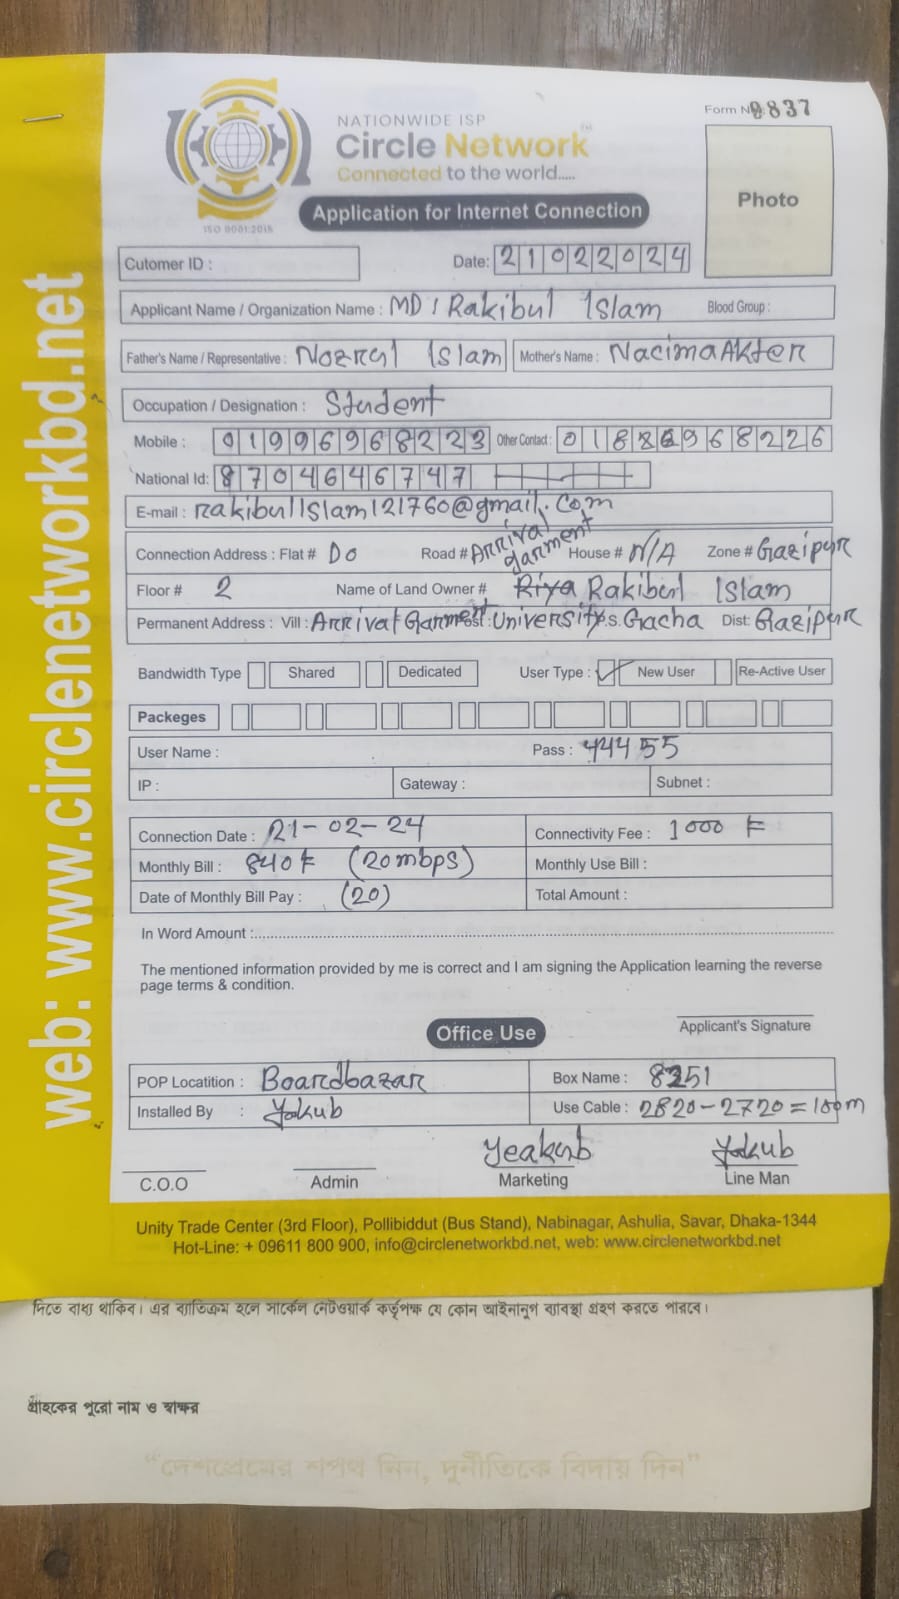 Form No 9837
NATIONWIDE ISP
Circle Network™
Connected to the world.....
ISO 9001:2015
Application for Internet Connection
Photo
Cutomer ID :
Date: 21022024
Applicant Name / Organization Name : MD: Rakibul Islam Blood Group :
Father's Name / Representative : Nozrul Islam Mother's Name : Nacima Akter
Occupation / Designation : Student
Mobile : 01996968223 Other Contact : 018 968226
National Id: 8704646747
E-mail : rakibulIslam121760@gmail.com
Connection Address : Flat # Do Road # Arrival garment House # N/A Zone # Gazipur
Floor # 2 Name of Land Owner # Riya Rakibul Islam
Permanent Address : Vill : Arrival Garment Post : University P.S. Gacha Dist: Gazipur
Bandwidth Type Shared Dedicated User Type : ✓ New User Re-Active User
Packeges
User Name : Pass : 44455
IP : Gateway : Subnet :
Connection Date : 21-02-24 Connectivity Fee : 1000 ৳
Monthly Bill : 840 ৳ (20mbps) Monthly Use Bill :
Date of Monthly Bill Pay : (20) Total Amount :
In Word Amount :
The mentioned information provided by me is correct and I am signing the Application learning the reverse
page terms & condition.
Applicant's Signature
Office Use
POP Locatition : Boardbazar Box Name : 8251
Installed By : Yakub Use Cable : 2820-2720=100m
Yeakub Yakub
C.O.O Admin Marketing Line Man
Unity Trade Center (3rd Floor), Pollibiddut (Bus Stand), Nabinagar, Ashulia, Savar, Dhaka-1344
Hot-Line: + 09611 800 900, info@circlenetworkbd.net, web: www.circlenetworkbd.net
web: www.circlenetworkbd.net
দিতে বাধ্য থাকিব। এর ব্যতিক্রম হলে সার্কেল নেটওয়ার্ক কর্তৃপক্ষ যে কোন আইনানুগ ব্যাবস্থা গ্রহণ করতে পারবে।
গ্রাহকের পুরো নাম ও স্বাক্ষর
“দেশপ্রেমের শপথ নিন, দুর্নীতিকে বিদায় দিন”